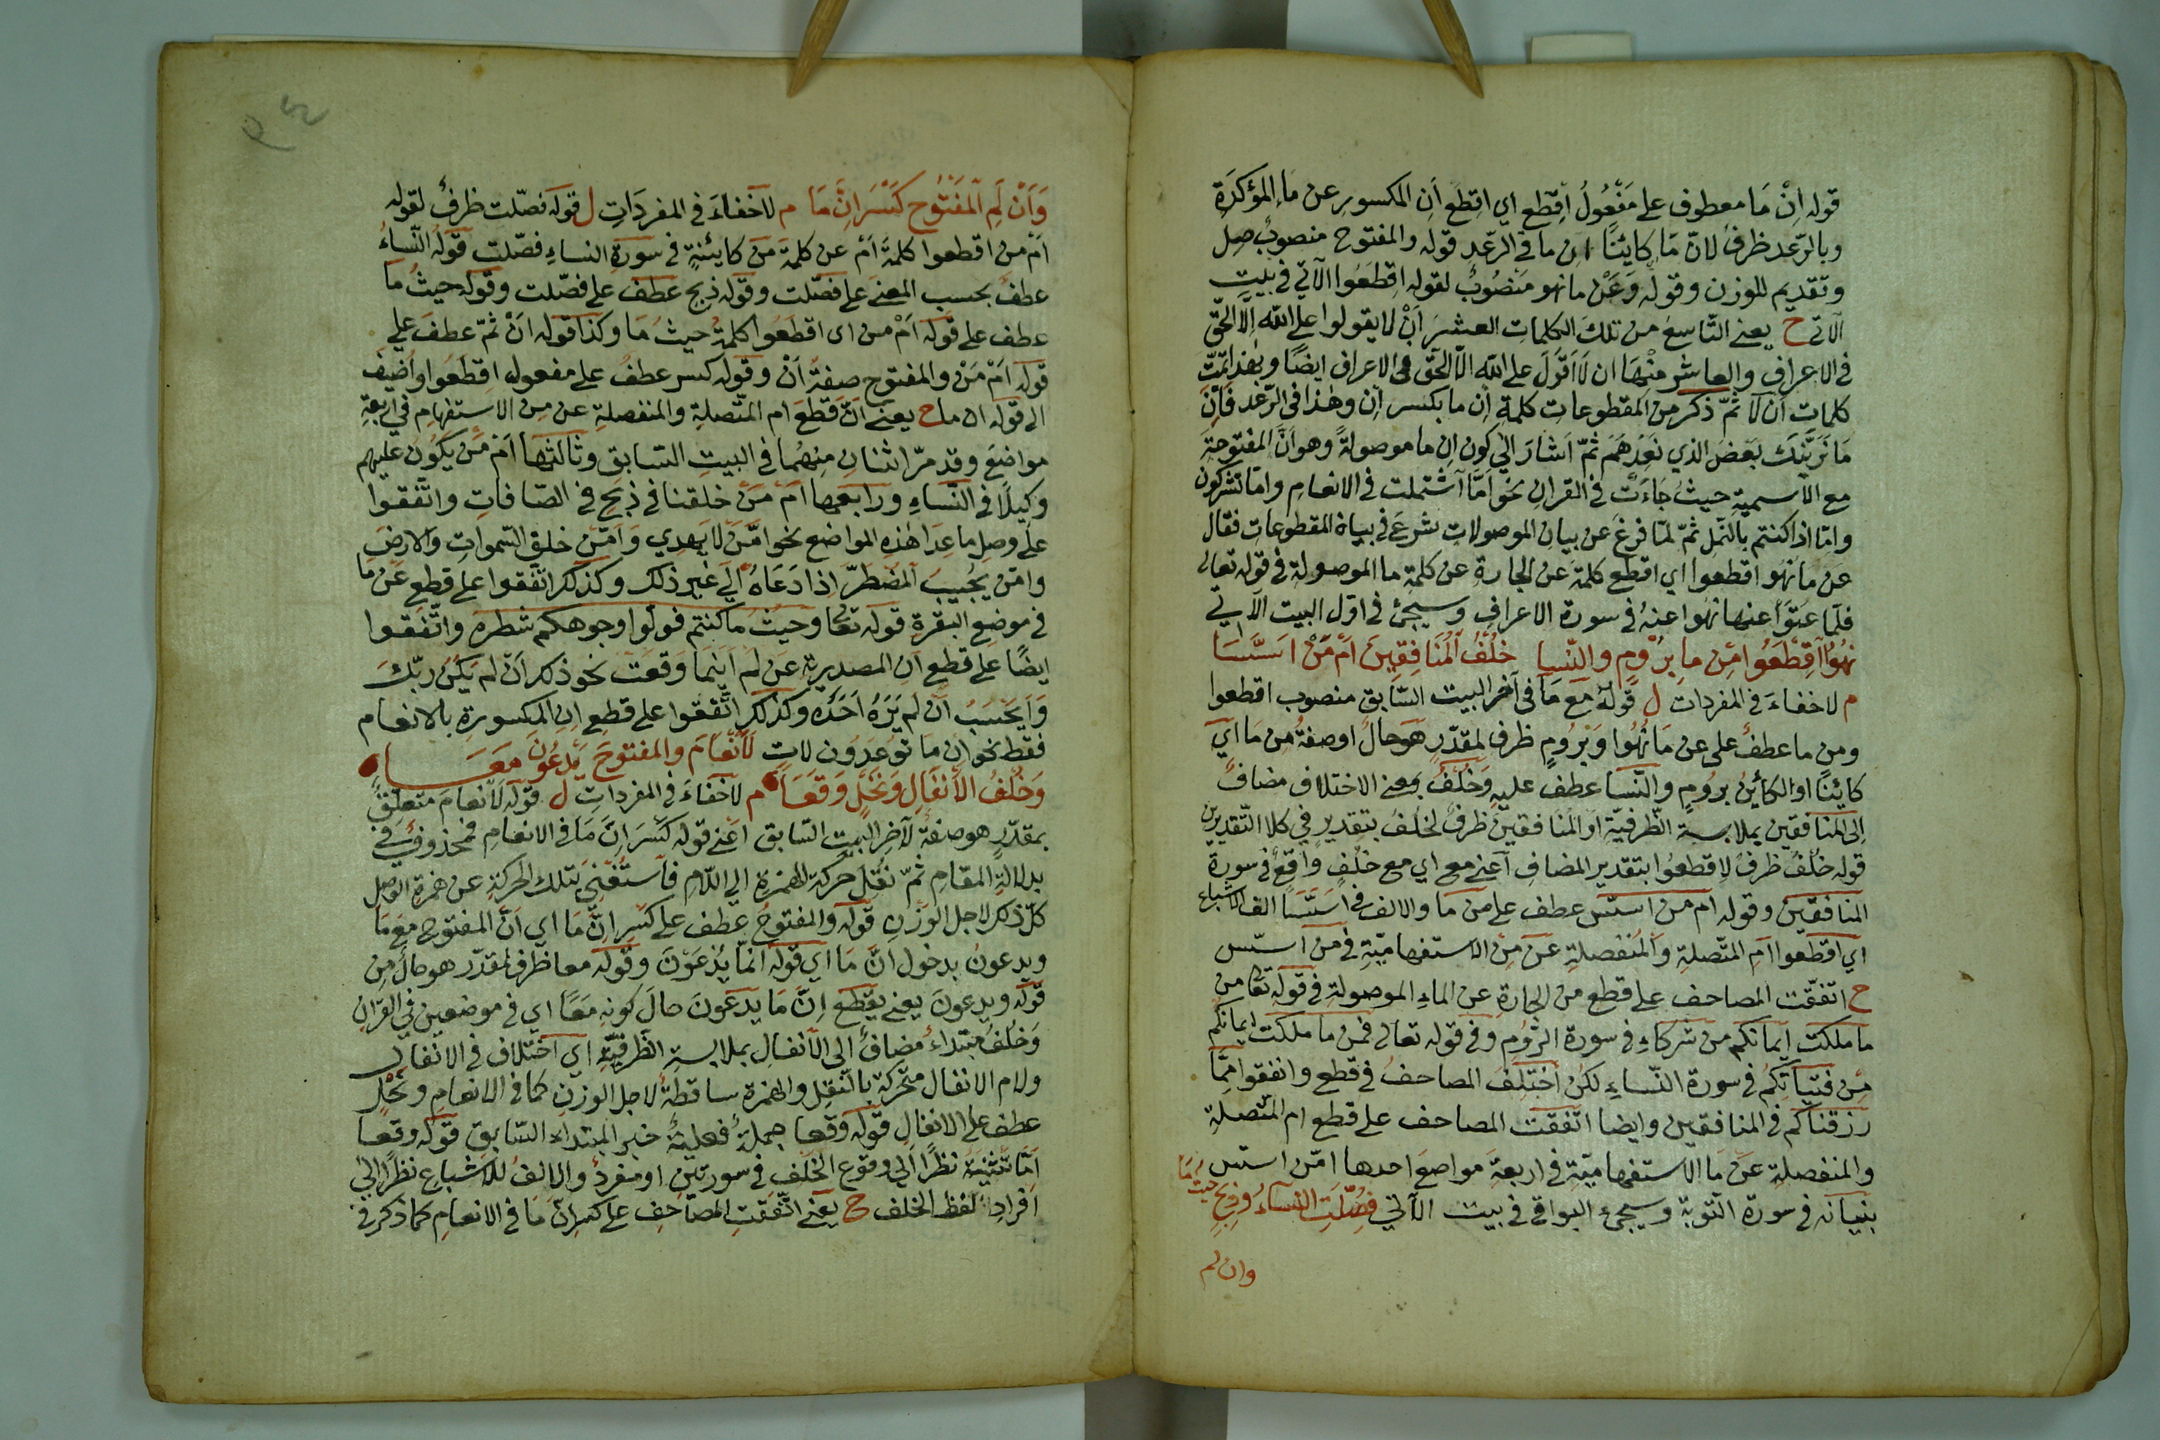 قوله اِنْ مَا معطوف على مَفْعُولُ اِقطع اي اقطع اَنِ المكسور عن مَا المؤكدَةِ
وبالرّعد ظرفٌ لانّ مَا كايئنًا اِن ما فى الرّعد قوله والمفتوح منصوبُ صِل
وتقديم للوزن وقولُه وَعَنْ ما نهو مَنْصُوبٌ لقوله اِقطعُوا الآتي فى بيت
الآتى ح يعنے التّاسعُ من تلك الكلمات العشرَ اَنْ لا يقولوا على اللّٰه اِلّا الحَقّ
فى الاعراف والعاشر منْهَا ان لَا اَقولَ على اللّٰه الّا الحَقّ فى الاعراف ايضًا وبهذا تمّت
كلمات اَن لا ثمّ ذكر من المقطوعات كلمة اِن ما بكسر اِن وهٰذا فى الرّعد فَاِنْ
مَا نَرَيَنّكَ بَعْضَ الذي نَعِدُهُمَ ثمّ اَشارَ الى كون اِن ما موصولةً وهو اَنَّ المفتوحة
مع الاسميةِ حيثُ جَاءَتْ فى القران نحو اَمَّا اشتملت فى الانعام وامّا تشركون
وامّا اذا كنتم بالنّمل ثمّ لمّا فرغ عن بيان الموصولات شرعَ فى بيان المقطوعات فقال
عن ما نهو اقطعوا اي اقطع كلمة عن الجارة عن كلمة ما الموصولة فى قوله تعالى
فلمّا عتَوْا عنها نهُوا عنهُ فى سورة الاعراف وسيجئ فى اوّل البيت الآتي
نهُوا اقِطَعُوا مِن ما بِرُومٍ والنّسا خُلفُ المُنَافِقِينَ اَمْ مَنْ اَسَّسَا
م لاخفاءَ فى المفردات ل قولهُ مع مَا فى آخر البيت السّابق منصوب اقطعوا
ومِن ما عطفٌ على عن مَا نُهُوا وَبرُومٍ ظرف لمقدّر هو حالٌ او صفةُ من مَا اي
كائنًا او الكائن بروم والنّسا عطف عليه وَخُلفُ بمعنى الاختلاف مضافٌ
اِلى المنافقين بملابسة الظّرفيّة او المنافقينَ ظرفٌ لخلفُ بتقدير فى كلا التّقديرين
قوله خُلفُ ظرفٌ لِاقطعُوا بتقدير المضاف اَعنے مع اي مع خلفٍ واقعٍ فى سورة
المنافقين وقوله ام من اسّس عطف على من مَا والالف فى اسّسَا الف الاشباع
اي اقطعوا امِ المتّصلةِ والمُنفصلةِ عن مِن الاستفهاميّةِ فى مَن اسّس
ح اتفقت المصاحف على قطع من الجارة عن الماءِ الموصولة فى قوله تعا من
ما ملكت اَيمانكم من شركاءِ فى سورة الرّوم وفى قوله تعالى فمن ما ملكت ايمانكم
مِن فتياتِكُم فى سورة النّساءِ لكن اختلفُ المصاحفُ فى قطع وانفقوا ممّا
رزقناكم فى المنافقين وايضا اتّفقت المصاحف على قطع ام المتّصلةِ
والمنفصلةِ عن مَا الاستفهاميّةِ فى اربعةَ مواضعَ احدها امّن اسّس
بنيانه فى سورة التوبة وسيجئ البواقى فى بيت الآتي فصّلت النّساء وذبح حيث مَا
وان لم
وَاَنْ لَم المَفتُوحَ كَسَرَ اِنَّ مَا م لا خفاءَ فى المفردَاتِ ل قوله فصّلت ظرفٌ لقوله
اَمْ من اقطعوا كلمةَ اَمْ عن كلمة مَن كايئنةٍ فى سورة النساءِ فصّلت قوله النّساءُ
عطفٌ بحسب المعنے على فصّلت وقوله ذبحٍ عطف على فصّلت وقوله حيثُ مَا
عطف على قوله اَمْ من اى اقطعُوا كلمةُ حيثُ مَا وكذا قوله اَنْ ثمّ عطفَ على
قوله اَمْ مَنْ والمفتوح صفة اَنْ وقوله كسر عطفُ على مفعول اقطعُوا واُضيفَ
الى قوله ان ما ح يعنے اَنّ قطعَ ام المتّصلة والمنفصلة عن مِن الاستفهام فى اربعةِ
مواضعَ وقد مرّ اثنان مِنهُما فى البيتِ السّابق وثالثهَا اَمْ مَن يكون عليهم
وكيلًا فى النّساءِ ورابعها اَمْ مَنْ خلقنا فى ذبح فى الصّافات واتّفقوا
على وصل ما عدَا هٰذه المواضع نحو امّنْ لا يهدي وَامّن خلق السّموات والارضَ
وامّن يُجيبَ المُضطرّ اِذا دَعَاهُ الى غير ذلك وكذلكَ اتفقوا على قطع عَن مَا
فى موضع البقرةِ قوله تعا وحيثُ ما كنتم فولّوا وجوهكم شطره واتّفقوا
ايضًا على قطع اَن المصدريةِ عن لَم اينمَا وقعت نحو ذلك اَنْ لم يَكُن ربّكَ
وَاَيَحْسَبُ اَنْ لم يَرَهُ اَحَدٌ وكذلكَ اتّفقوا على قطع اِن المكسورةِ بالانعام
فقط نحو اِنّ ما توعدُون لات لَانْعَامَ والمفتوحَ يَدعُونَ معَـــا
وَخُلْفُ الاَنفَالِ وَنَحْلٍ وَقَعَا م لاخفاءَ فى المفردات ل قوله لَانعامَ متعلّقٌ
بمقدّر هو صفةٌ لآخر البيت السّابق اعنے قوله كسَرَ اِنّ مَا فى الانعام فمحذوف فى
بدلالةِ المقام ثمّ نقل حركة الهمزة الى اللّام فاستُغْنِيَ بتلك الحركةِ عن همزةِ الوصل
كلّ ذلك لاجل الوزن قوله والمفتوحُ عطف على كسر انّ مَا اي اَنّ المفتوح مع مَا
ويدعونُ بدخول انّ مَا اي قوله انّما يُدْعَوْنَ وقوله معا ظرف لمقدّر هو حالٌ مِن
قوله ويدعونَ يعنے يقطع اِنَّ مَا يدعونَ حالَ كونهِ معًا اي فى موضعين فى القرآن
وَخُلفُ مبتداءٌ مضافٌ الى الاَنفال بملابسةِ الظّرفيّة اي اختلاف فى الانفال
ولام الانفال متحركة بالنقل والهمزة ساقطةٌ لاجل الوزن كما فى الانعام ونحْلٍ
عطف على الانفال قوله وقعا جملةٌ فعليةٌ خبر المبتداءِ السّابق قوله وقعا
اِمّا تثنيةٌ نظرًا الى وقوع الخلف فى سورتين او مفردٌ والالفُ للاشباع نظرًا الى
اَفراد لفظ الخلف ح يعنے اتّفقتِ المصَاحِف على كسر انّ مَا فى الانعام كما ذكر فى